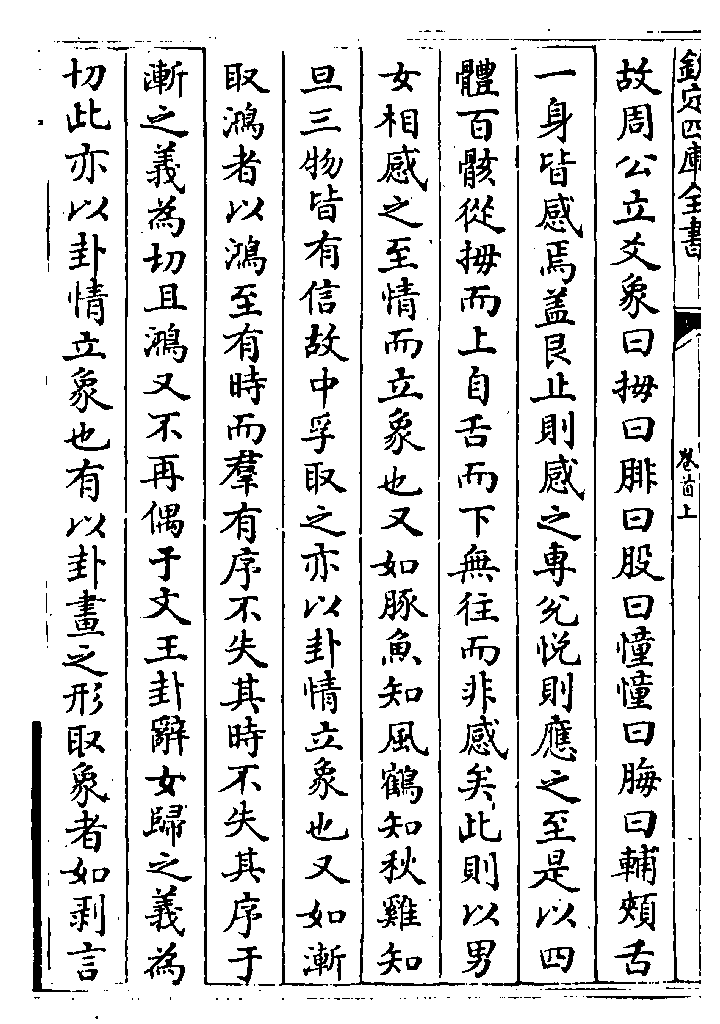 欽定四庫全書
卷首上
故周公立爻象曰拇曰腓曰股曰憧憧曰脢曰輔頰舌
一身皆感焉盖艮止則感之專兊悅則應之至是以四
體百骸從拇而上自舌而下無往而非感矣此則以男
女相感之至情而立象也又如豚魚知風鶴知秋雞知
旦三物皆有信故中孚取之亦以卦情立象也又如漸
取鴻者以鴻至有時而羣有序不失其時不失其序于
漸之義為切且鴻又不再偶于文王卦辭女歸之義為
切此亦以卦情立象也有以卦畫之形取象者如剥言